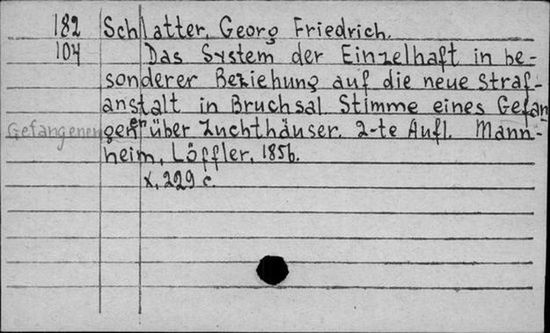 182 Schlatter, Georg Friedrich.
104 Das System der Einzelhaft in be-
sonderer Beziehung auf die neue Straf-
anstalt in Bruchsal Stimme eines Gefan
Gefangenen gen über Zuchthäuser. 2-te Aufl. Mann-
heim, Löffler, 1856.
X, 229 c.